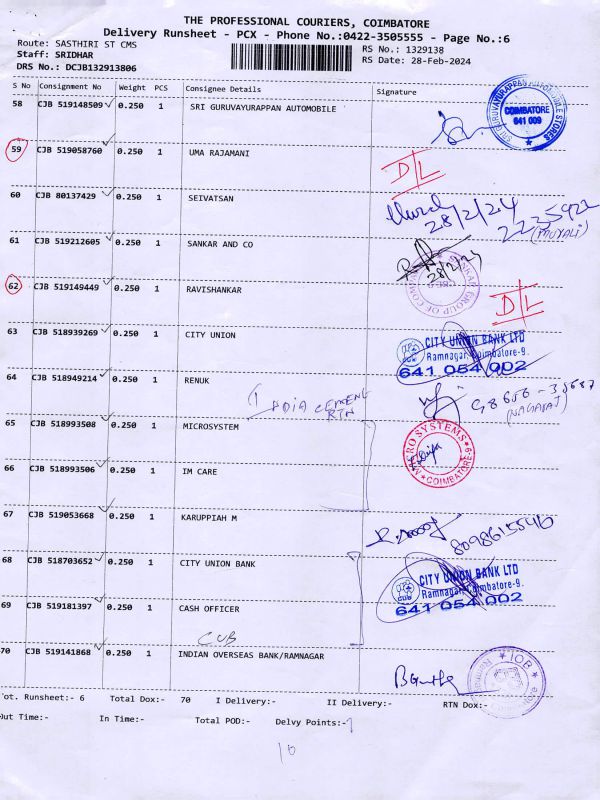 THE PROFESSIONAL COURIERS, COIMBATORE
Delivery Runsheet - PCX - Phone No.:0422-3505555 - Page No.:6
Route: SASTHIRI ST CMS
RS No.: 1329138
Staff: SRIDHAR
RS Date: 28-Feb-2024
DRS No.: DCJB132913806
S No Consignment No Weight PCS Consignee Details Signature
58 CJB 519148509 0.250 1 SRI GURUVAYURAPPAN AUTOMOBILE
SRI GURUVAYURAPPAN AUTOMOBILE STORES
COIMBATORE
641 009
59 CJB 519058760 0.250 1 UMA RAJAMANI
D/L
60 CJB 80137429 0.250 1 SEIVATSAN
28/2/24
61 CJB 519212605 0.250 1 SANKAR AND CO
28/2/24
62 CJB 519149449 0.250 1 RAVISHANKAR
D/L
63 CJB 518939269 0.250 1 CITY UNION
CITY UNION BANK LTD
Ramnagar, Coimbatore-9.
641 054 002
64 CJB 518949214 0.250 1 RENUK
INDIA CEMENT
RTN
(NAGARAJ)
65 CJB 518993508 0.250 1 MICROSYSTEM
MICRO SYSTEMS
COIMBATORE-9
66 CJB 518993506 0.250 1 IM CARE
67 CJB 519053668 0.250 1 KARUPPIAH M
8098615546
68 CJB 518703652 0.250 1 CITY UNION BANK
CITY UNION BANK LTD
Ramnagar, Coimbatore-9.
641 054 002
69 CJB 519181397 0.250 1 CASH OFFICER
CUB
70 CJB 519141868 0.250 1 INDIAN OVERSEAS BANK/RAMNAGAR
IOB
Tot. Runsheet:- 6 Total Dox:- 70 I Delivery:- II Delivery:- RTN Dox:-
Out Time:- In Time:- Total POD:- Delvy Points:-
10